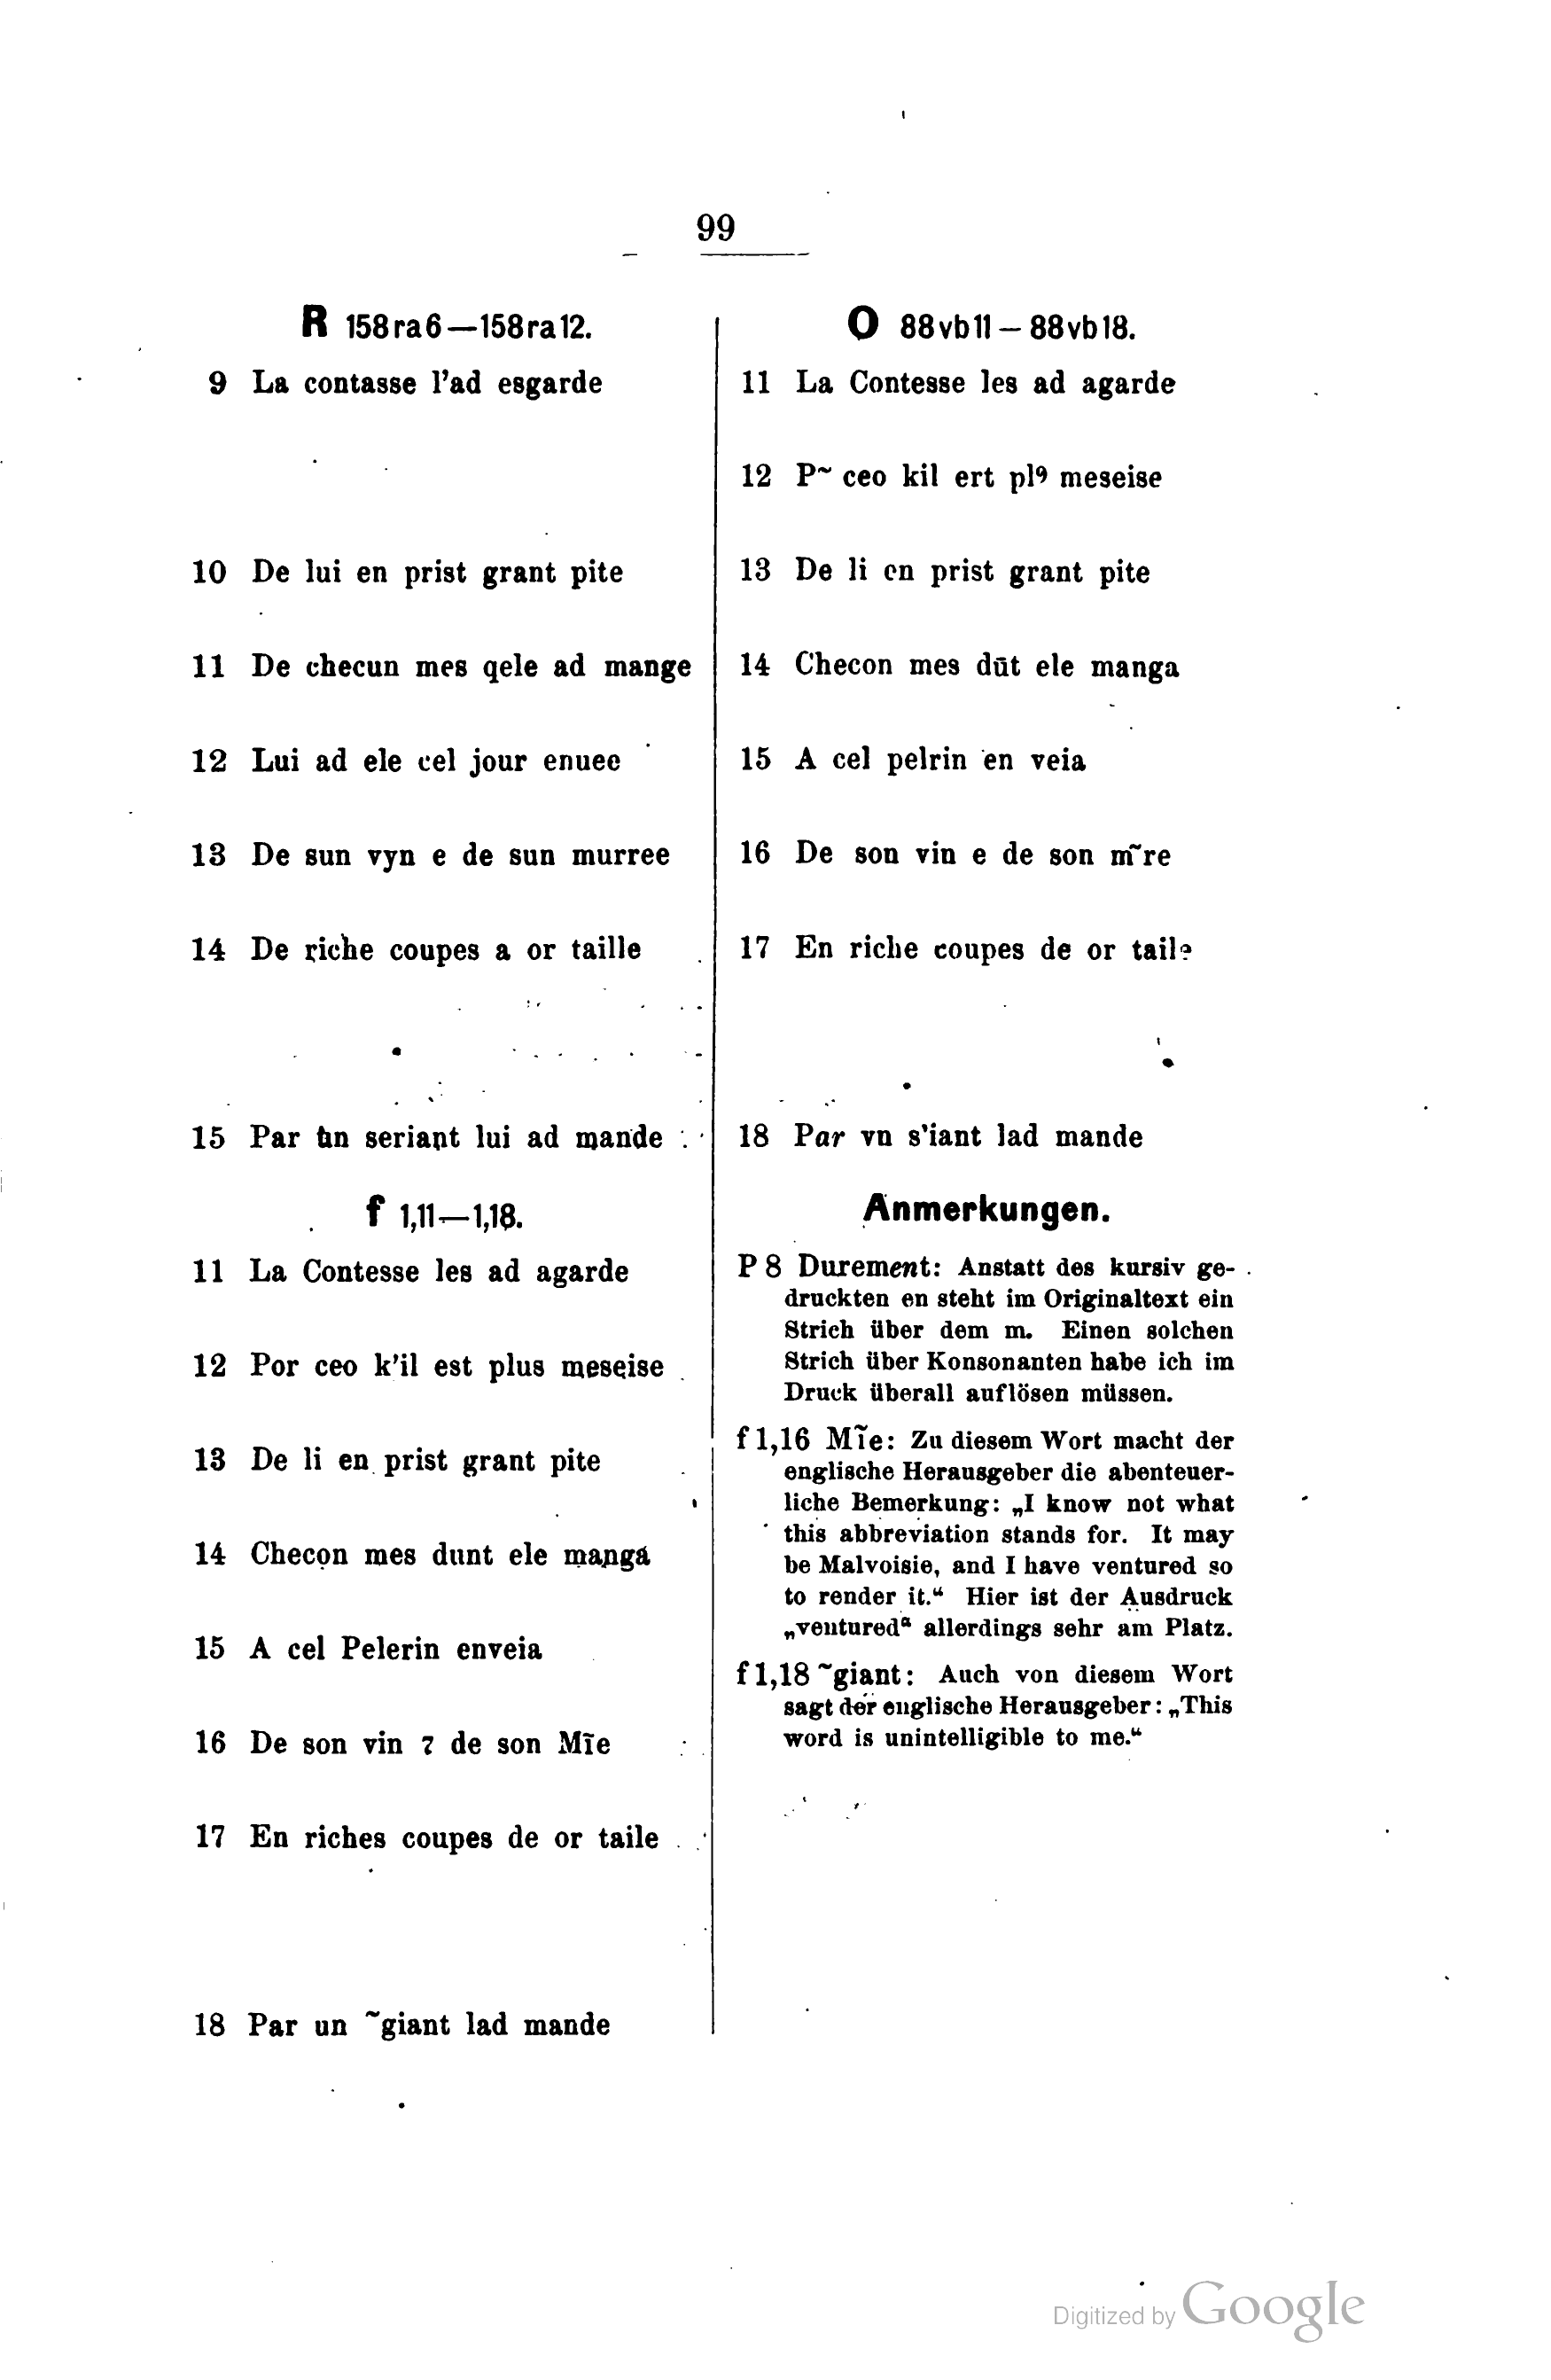 99
R 158ra6—158ra12.
9 La contasse l'ad esgarde
10 De lui en prist grant pite
11 De checun mes qele ad mange
12 Lui ad ele cel jour enuee
13 De sun vyn e de sun murree
14 De riche coupes a or taille
15 Par un seriant lui ad mande
f 1,11—1,18.
11 La Contesse les ad agarde
12 Por ceo k'il est plus meseise
13 De li en prist grant pite
14 Checon mes dunt ele manga
15 A cel Pelerin enveia
16 De son vin 7 de son Mīe
17 En riches coupes de or taile
18 Par un ~giant lad mande
O 88vb11 — 88vb18.
11 La Contesse les ad agarde
12 P~ ceo kil ert plꝰ meseise
13 De li en prist grant pite
14 Checon mes dūt ele manga
15 A cel pelrin en veia
16 De son vin e de son m~re
17 En riche coupes de or taile
18 Par vn s'iant lad mande
Anmerkungen.
P 8 Durement: Anstatt des kursiv ge-
druckten en steht im Originaltext ein
Strich über dem m. Einen solchen
Strich über Konsonanten habe ich im
Druck überall auflösen müssen.
f 1,16 Mĩe: Zu diesem Wort macht der
englische Herausgeber die abenteuer-
liche Bemerkung: „I know not what
this abbreviation stands for. It may
be Malvoisie, and I have ventured so
to render it.“ Hier ist der Ausdruck
„ventured“ allerdings sehr am Platz.
f 1,18 ~giant: Auch von diesem Wort
sagt der englische Herausgeber: „This
word is unintelligible to me.“
Digitized by Google